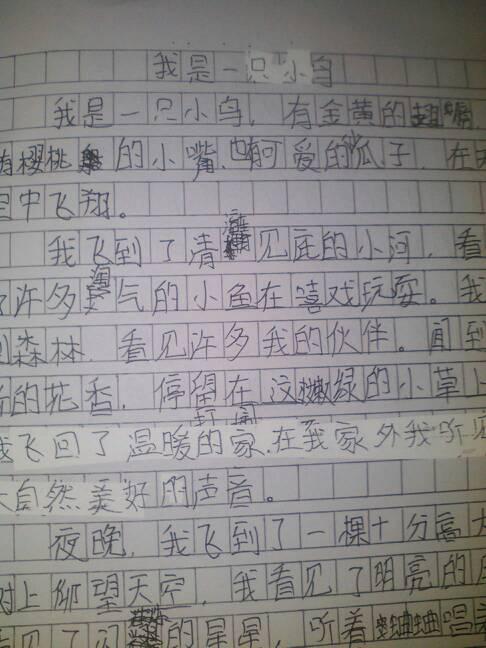 我是一只小鸟
我是一只小鸟，有金黄的翅
有樱桃的小嘴，也有可爱的爪子，在天
空中飞翔。
我飞到了清澈见底的小河，看
了许多淘气的小鱼在嘻戏玩耍。我
到森林，看见许多我的伙伴。闻到
的花香，停留在嫩绿的小草上
我飞回了温暖的家，在我家外我听见
大自然美好的声音。
夜晚，我飞到了一棵十分高大
树上仰望天空，我看见了明亮的月
看见了闪的星星，听着蛐蛐唱